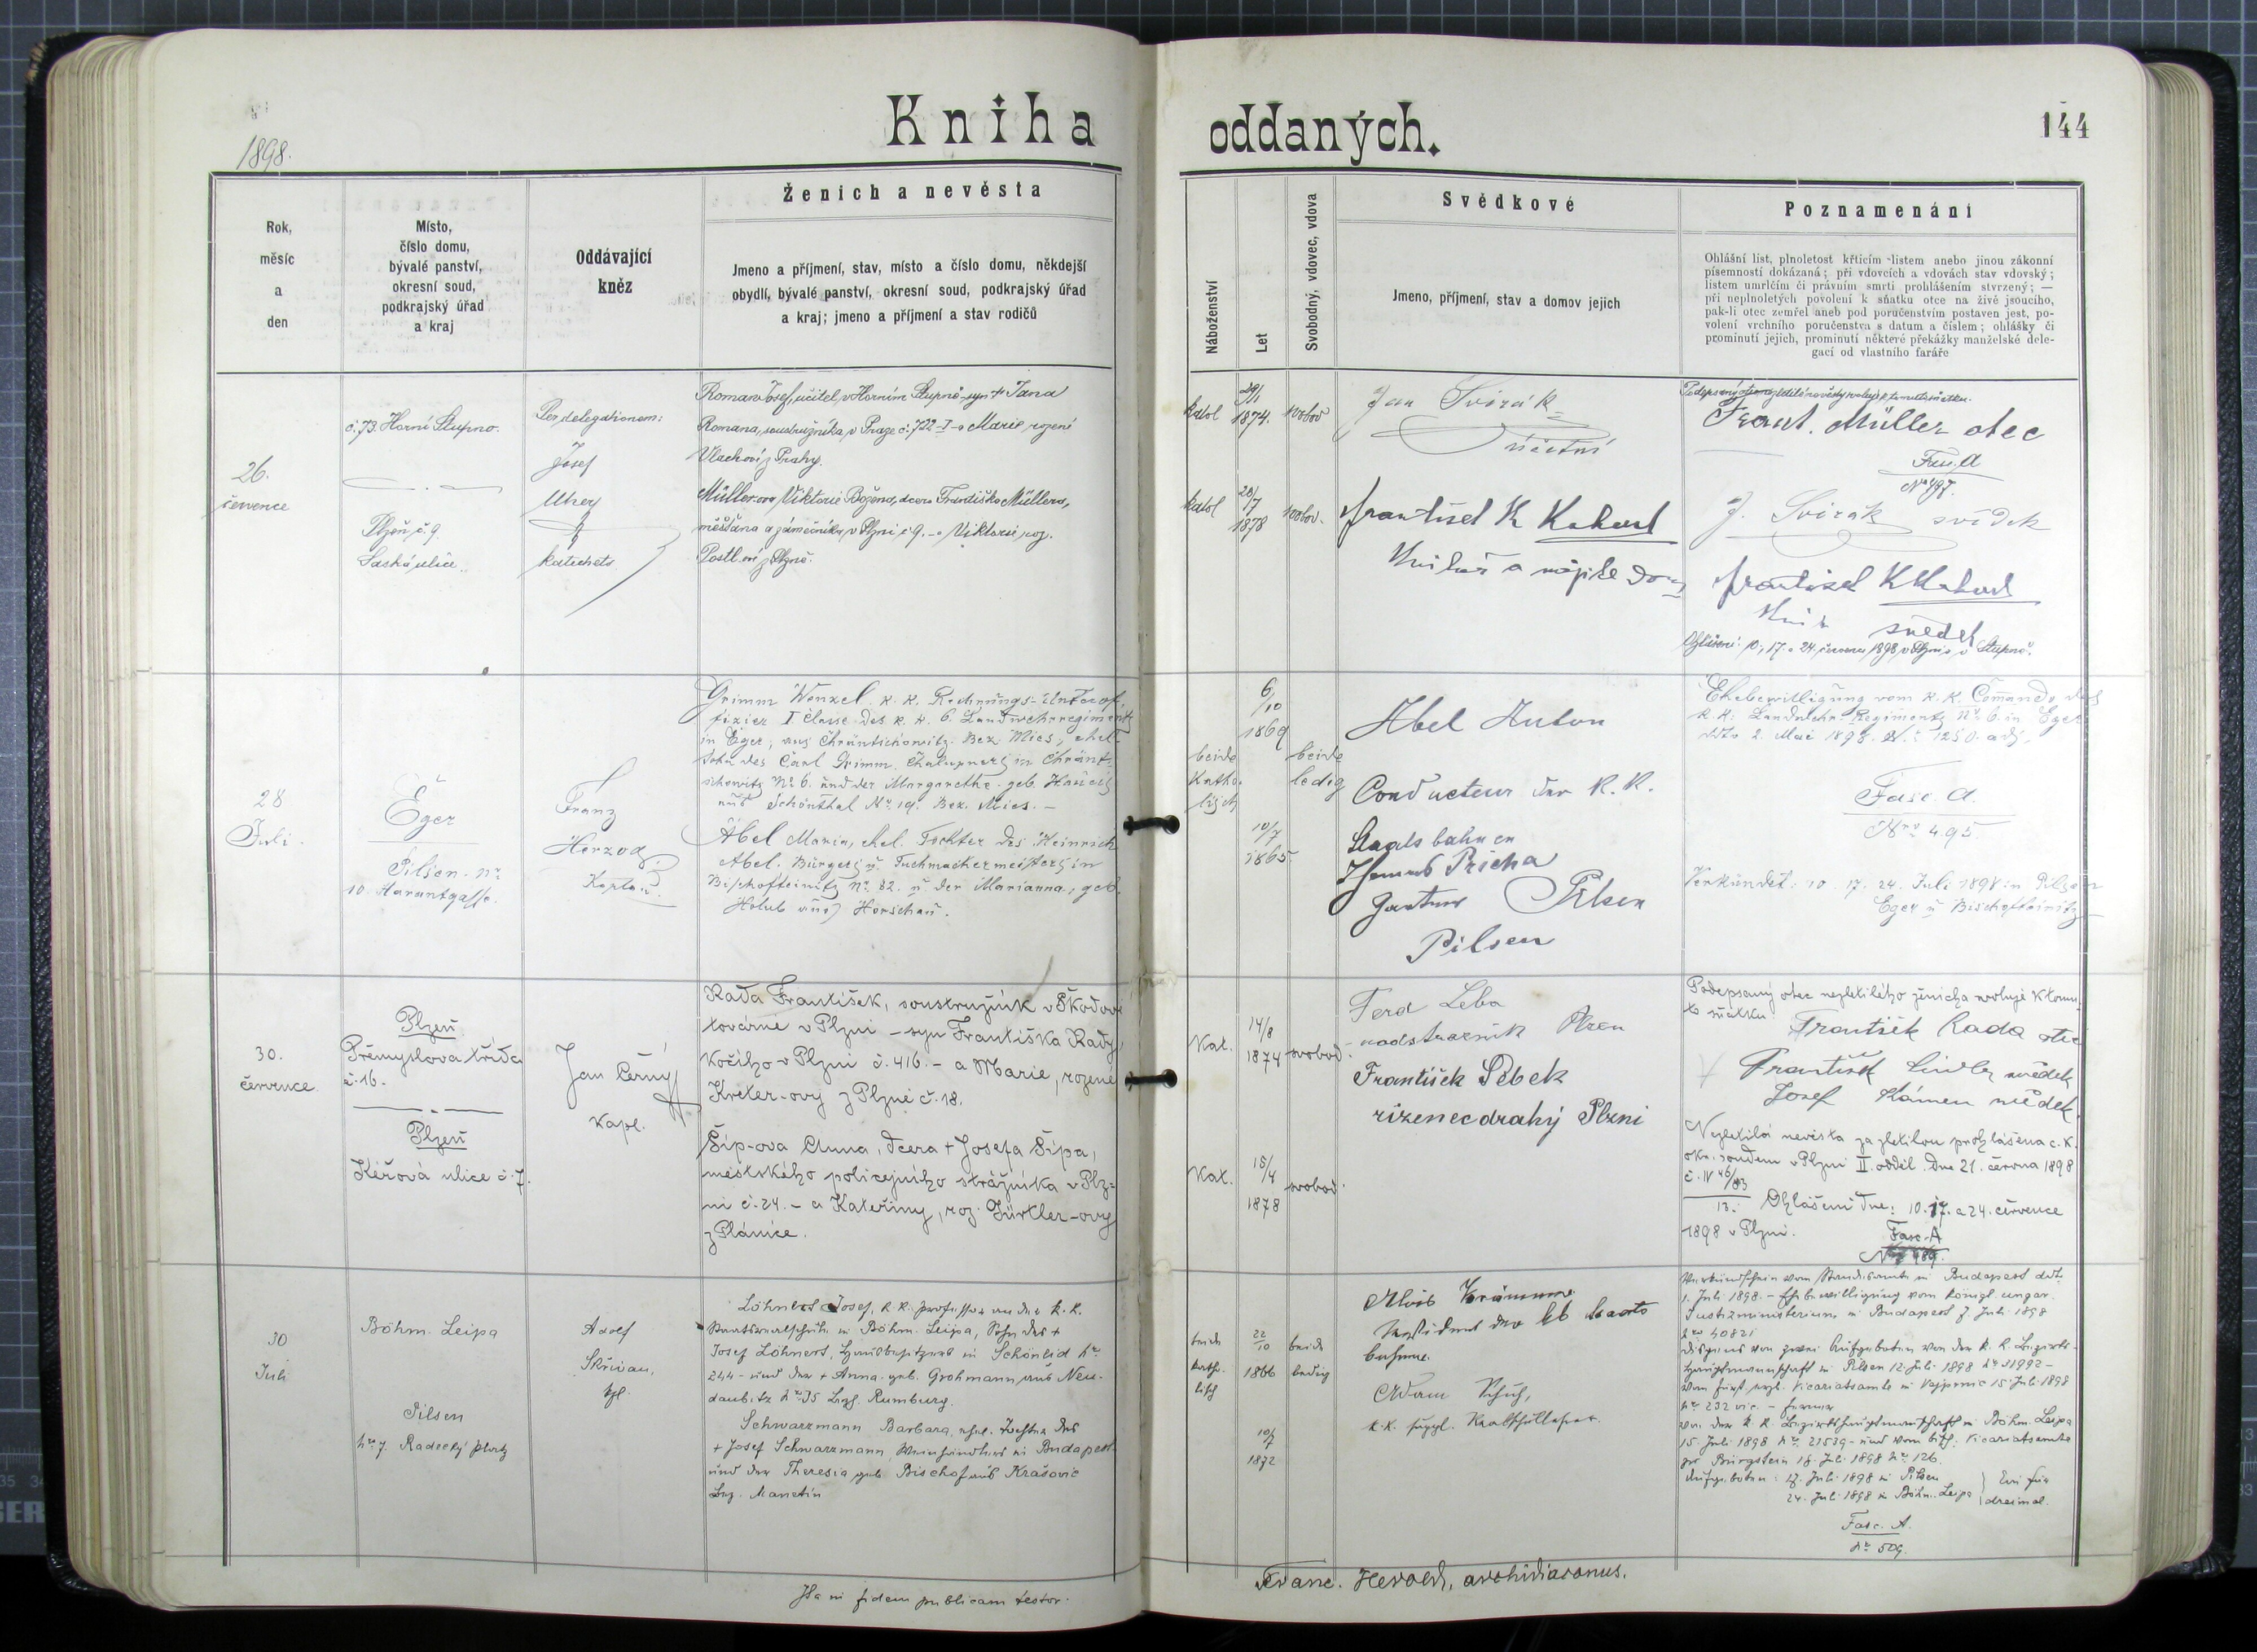 Kniha oddaných.
144
1898.
Rok,
měsíc
a
den
Místo,
číslo domu,
bývalé panství,
okresní soud,
podkrajský úřad
a kraj
Oddávající
kněz
Ženich a nevěsta
Jmeno a příjmení, stav, místo a číslo domu, někdejší
obydlí, bývalé panství, okresní soud, podkrajský úřad
a kraj; jmeno a příjmení a stav rodičů
Náboženství
Let
Svobodný, vdovec, vdova
Svědkové
Jmeno, příjmení, stav a domov jejich
Poznamenání
Ohlášní list, plnoletost křticím listem anebo jinou zákonní
písemností dokázaná; při vdovcích a vdovách stav vdovský;
listem umrlčím či právním smrti prohlášením stvrzený; —
při neplnoletých povolení k sňatku otce na živě jsoucího,
pak-li otec zemřel aneb pod poručenstvím postaven jest, po-
volení vrchního poručenstva s datum a číslem; ohlášky či
prominutí jejich, prominutí některé překážky manželské dele-
gací od vlastního faráře
26.
července
č. 73. Horní Stupno.
Plzeň, č. 9.
Saská ulice.
Per delegationem:
Josef
katecheta
Roman Josef, učitel v Horním Stupně, syn + Jana
Romana, soustružníka v Praze č. 722-I - a Marie rozené
Vlachovi z Prahy.
Müller-ova Viktorie Božena, dcera Františka Müllera,
měšťana a zámečníka v Plzni č. 9. - a Viktorie, roz.
Postl-ovi z Plzně.
katol
29/1
1874.
svobod
katol
28/7
1878
svobod.
Jan Svirák
účetní
František K
Frant. Müller otec
Fas. A
No 497.
J. Svirák svědek
František K
svědek
Ohlášení: 10., 17. a 24. července 1898 v Plzni a v Stupně.
28
Juli.
Eger
Pilsen. Nr.
10. Harantgasse.
Franz
Herzog,
Kaplan.
Grimm Wenzel k. k. Rechnungs-Unterof-
fizier I Classe des k. k. 6. Landwehrregiments
in Eger, aus Chrantschowitz. Bez. Mies, ehel.
Sohn des Carl Grimm, Chaluppners in Chrant-
schowitz No 6. und der Margarethe geb.
aus Schönthal No. 19. Bez. Mies. -
Abel Maria, ehel. Tochter des Heinrich
Abel, Bürgers u. Tuchmachermeisters in
Bischofteinitz No. 82. u. der Marianna, geb.
Holub aus Horschau.
beide
Katho-
lisch
6/10
1869
10/7
1865
beide
ledig
Abel Anton
Conducteur der K. K.
Staatsbahnen
Pilsen
Pilsen
Ehebewilligung vom k. k. Commando des
k. k. Landwehr-Regiments No 6. in Eger
ddto 2. Mai 1898. N. E 1250. adj.
Fasc. A.
Nro 495.
Verkündet: 10. 17. 24. Juli 1898 in Pilsen
Eger u. Bischofteinitz
30.
července.
Plzeň.
Přemyslova třída
č. 16.
Plzeň
Kéřová ulice č. 7.
Jan Černý
kapl.
Rada František, soustružník v Škodově
továrně v Plzni - syn Františka Rady,
kočího v Plzni č. 416. - a Marie, rozené
Kreter-ovy z Plzně č. 18.
Šíp-ova Anna, dcera + Josefa Šípa,
městského policejního strážníka v Plz-
ni č. 24. - a Kateřiny, roz. Türtler-ovy
z Plánice.
Kat.
14/8
1874
svobod.
Kat.
15/4
1878
svobod.
Ferd Leba
nadstražník Plzen
František Šebek
rizenec drahý Plzni
Podepsaný otec nezletilého ženicha svoluje k tomu-
to sňatku. František Rada otec
František svědek
Josef Kámen svědek.
Nezletilá nevěsta za zletilou prohlášena c. k.
okr. soudem v Plzni II. odděl. dne 21. června 1898
č. IV 46/83
13. Ohlášení dne: 10. 17. a 24. července
1898 v Plzni.
Fasc. A
30
Juli
Böhm. Leipa
Pilsen
No 7. Radecký Platz
Adolf
Skřivan,
kpl.
Löhnert Josef, k. k. Professor an der k. k.
Staatsrealschule in Böhm. Leipa, Sohn des +
Josef Löhnert, Hausbesitzers in Schönlind No
244 - und der + Anna geb. Grohmann aus Neu-
daubitz No 35 Bez. Rumburg.
Schwarzmann Barbara, ehel. Tochter des
+ Josef Schwarzmann, Weinhändlers in Budapest
und der Theresia geb. Bischof aus Krašovic
Bez. Manetin
beide
katho-
lisch
22/10
1866
10/7
1872
beide
ledig
Adam
k. k. suppl. Realschullehrer.
Verkündschein vom Standesamte in Budapest ddt.
1. Juli 1898. - Ehebewilligung vom königl. ungar.
Justizministerium in Budapest 7. Juli 1898
No 40821
Dispens von zwei Aufgeboten von der k. k. Bezirks-
hauptmannschaft in Pilsen 12. Juli 1898 No 31992 -
vom fürst. erzb. Vicariatsamte in Vejprnic 15. Juli 1898
No 232 vic. - ferner
von der k. k. Bezirkshauptmannschaft in Böhm. Leipa
15. Juli 1898 No 21539 - und vom bisch. Vicariatsamte
zu Bürgstein 18. Juli 1898 No 126.
Aufgeboten: 17. Juli 1898 in Pilsen
24. Juli 1898 in Böhm. Leipa
Ein für
dreimal.
Fasc. A.
No 509.
Ita in fidem publicam testor.
Franc. Herold, archidiaconus.